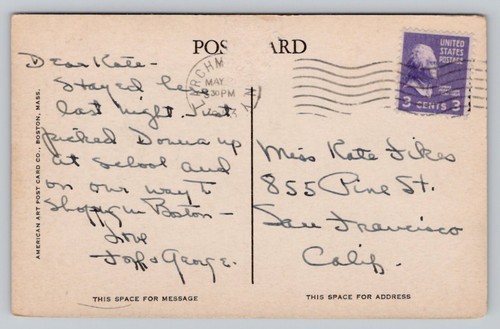 POST CARD
LARCHM
MAY
30 PM
N.Y.
UNITED
STATES
POSTAGE
3 CENTS 3
Dear Kate-
Stayed here
last night. Just
picked Donna up
at school and
on our way to
Shopping in Boston -
Love
George.
Miss Kate Fikes
855 Pine St.
San Francisco
Calif.
AMERICAN ART POST CARD CO., BOSTON, MASS.
THIS SPACE FOR MESSAGE
THIS SPACE FOR ADDRESS